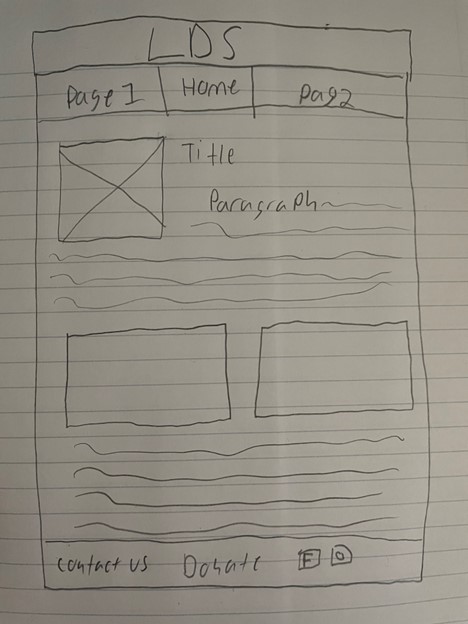 LDS
Page 1 Home Pag2
Title
Paragraph
Contact us Donate F